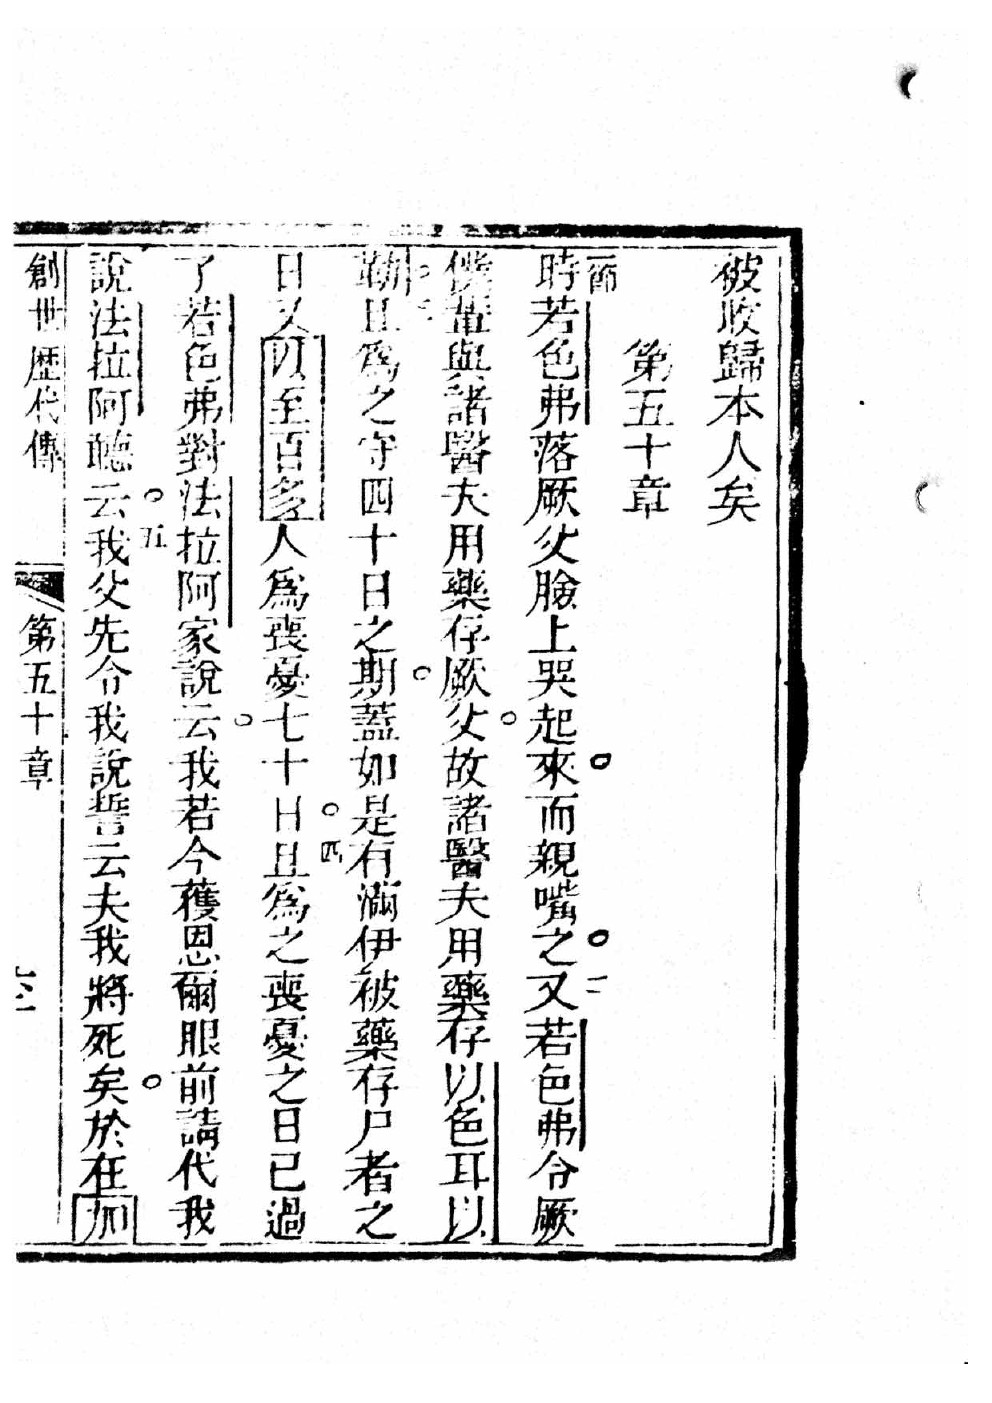 被收歸本人矣
第五十章
一節
時若色弗落厥父臉上哭起來。而親嘴之。二又若色弗令厥
僕輩與諸醫夫用藥存厥父。故諸醫夫用藥存以色耳以
勒。三且爲之守四十日之期。蓋如是有滿伊被藥存尸者之
日又以至百多人爲喪憂七十日。四且爲之喪憂之日已過
了若色弗對法拉阿家說云。我若今獲恩爾眼前請代我
說法拉阿聽云。五我父先令我說誓云夫我將死矣。於在加
創世歷代傳 第五十章